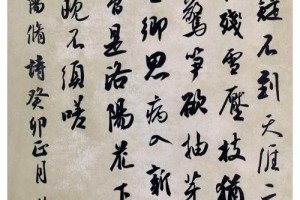 疑不到天涯二
殘雪壓枝猶
驚筍欲抽芽
生鄉思病入新
曾是洛陽花下
晚不須嗟
陽脩詩癸卯正月